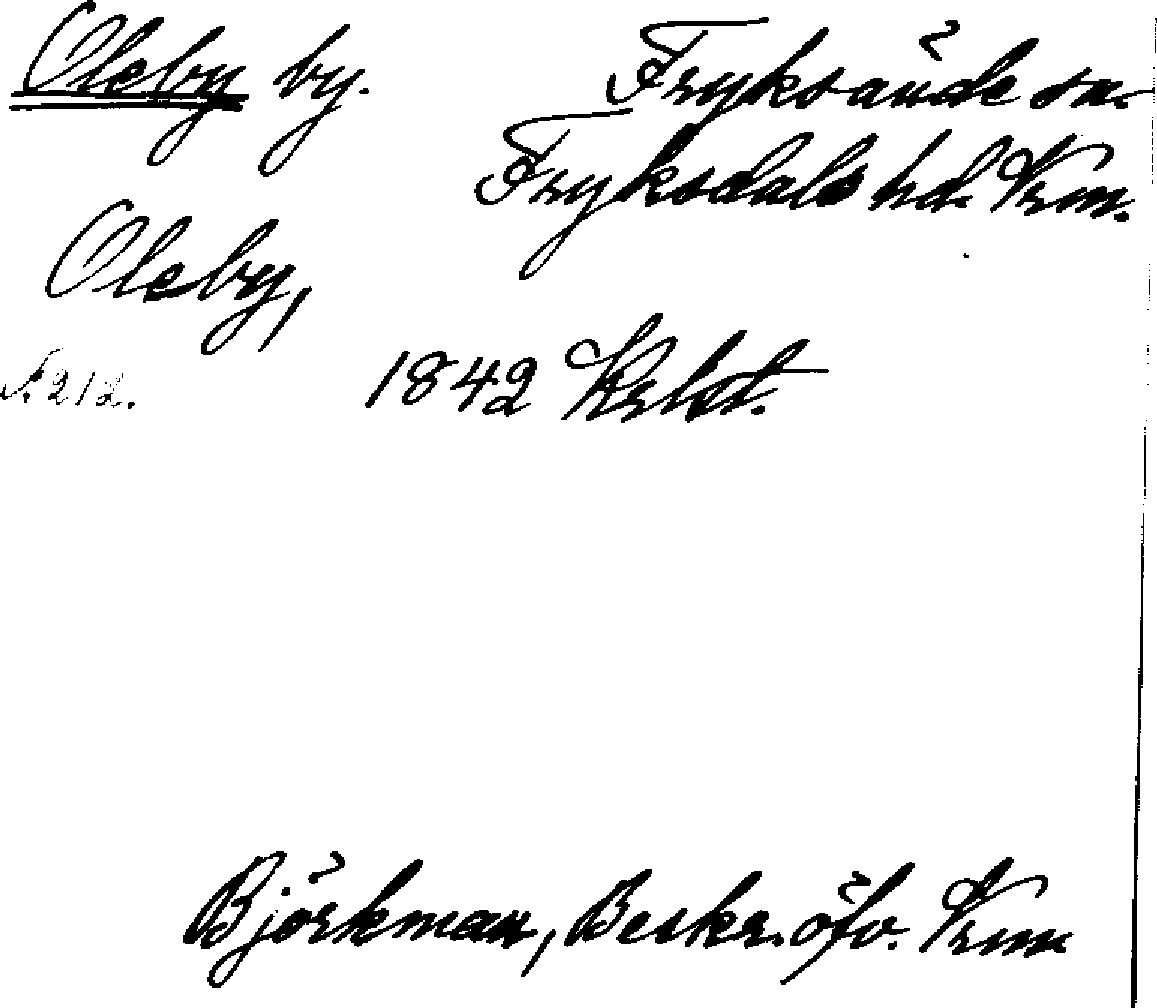 Oleby by. Fryksände sn.
Fryksdals hd. Vrm.
Oleby,
s. 212.
1842 Krlst.
Björkman, Beskr. öfv. Vrm